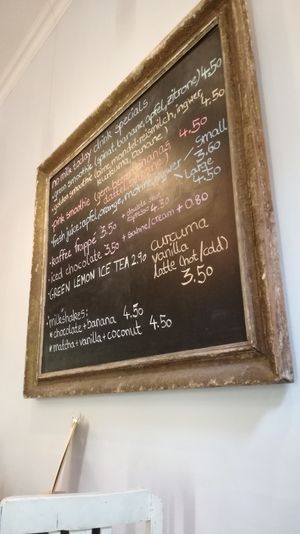 no milk today drink specials
• green smoothie (spinat, banane, apfel, zitrone) 4.50
• golden smoothie (birne, mandel-reismilch, ingwer, kurkuma, banane) 4.50
pink smoothie (gem. beeren, ananas, dattel, 4.50
fresh juice: apfel, orange, möhre, ingwer
small 3.60
large 4.50
• kaffee frappé 3.50 + double espresso 4.30
• iced chocolate 3.50 + sahne/cream + 0.80
• GREEN LEMON ICE TEA 2.90
curcuma
vanilla
latte (hot/cold)
3.50
milkshakes:
* chocolate + banana 4.50
* matcha + vanilla + coconut 4.50